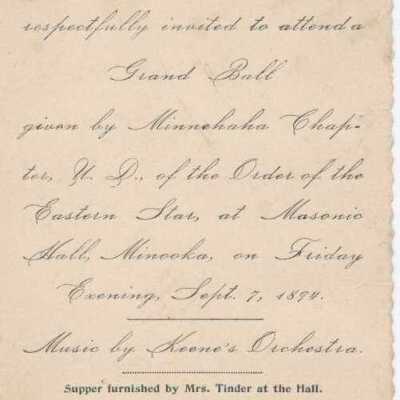 respectfully invited to attend a
Grand Ball
given by Minnehaha Chap-
ter, U. D., of the Order of the
Eastern Star, at Masonic
Hall, Minooka, on Friday
Evening, Sept. 7, 1894.
Music by Keene's Orchestra.
Supper furnished by Mrs. Tinder at the Hall.